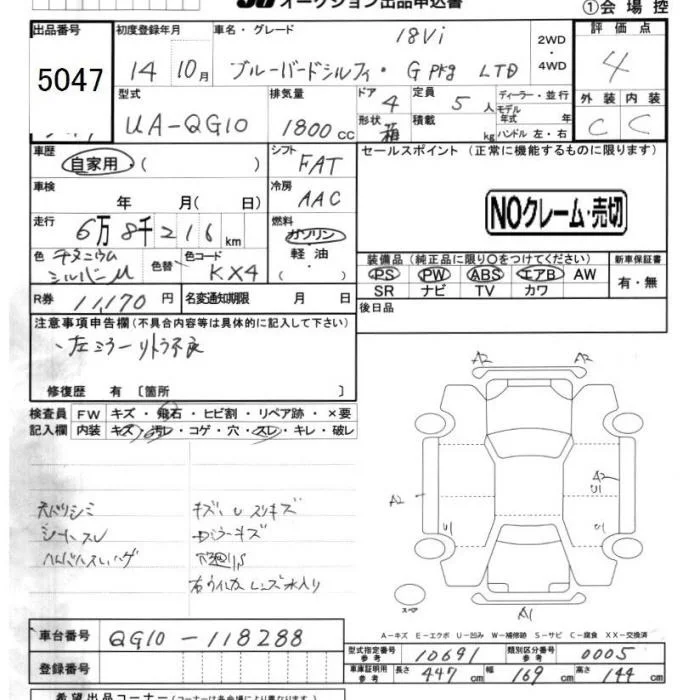 オークション出品申込書
①会場控
出品番号 初度登録年月 車名・グレード 18Vi 2WD・4WD 評価点
5047 14 10月 ブルーバードシルフィ・G pkg LTD 4
型式 排気量 ドア 4 定員 5人 ディーラー・並行 外装 内装
UA-QG10 1800cc 形状 箱 積載 kg モデル年式 年 ハンドル 左・右 C C
車歴 自家用 ( ) シフト FAT セールスポイント (正常に機能するものに限ります)
車検 年 月( 日) 冷房 AAC
NOクレーム・売切
走行 6万8千216km 燃料 ガソリン・軽油・
色 チタニウムシルバーM 色替 色コード KX4
装備品 (純正品に限り○をつけてください) 新車保証書
PS PW ABS エアB AW 有・無
SR ナビ TV カワ
R券 11,170円 名変通知期限 月 日 後日品
注意事項申告欄 (不具合内容等は具体的に記入して下さい)
・左ミラーリトラ不良
修復歴 有 〔箇所 〕
検査員 FW キズ・飛石・ヒビ割・リペア跡・×要
記入欄 内装 キズ・汚レ・コゲ・穴・スレ・キレ・破レ
A2 A2
A2 A2
U1
U1 U1
天井シミ キズ、U スリキズ
シートスレ Dミラーキズ
ハンドルスレ、ハゲ 下廻リS
右ウィンカーレンズ水入り
スペア
A1
A-キズ E-エクボ U-凹み W-補修跡 S-サビ C-腐食 XX-交換済
車台番号 QG10-118288
型式指定番号 参考 10691 類別区分番号 参考 0005
登録番号 車庫証明用 参考 長さ 447cm 幅 169cm 高さ 144cm
希望出品コーナー